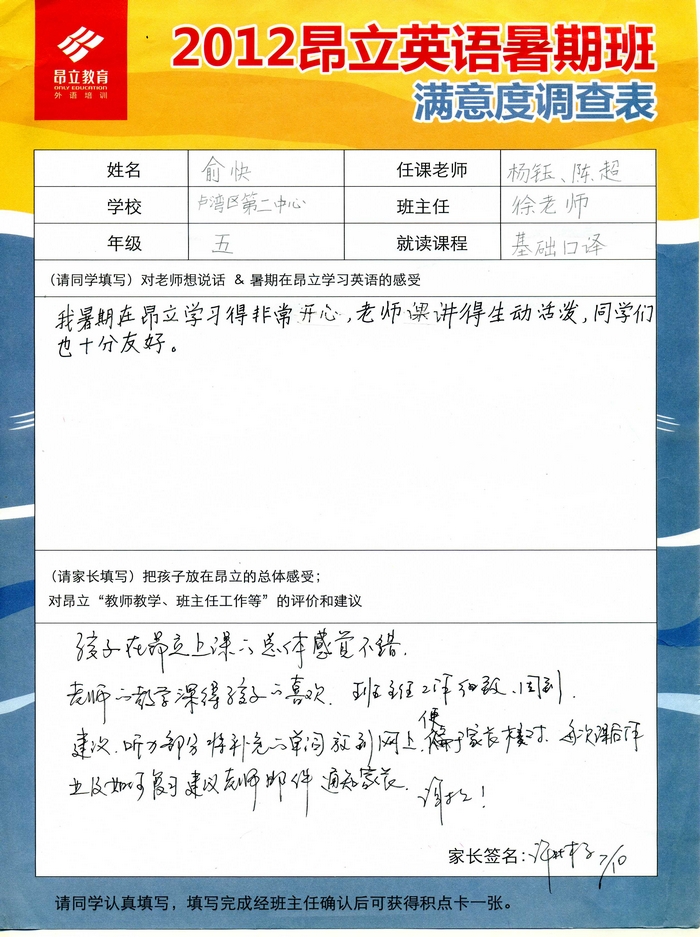 昂立教育
ONLY EDUCATION
外语培训
2012昂立英语暑期班
满意度调查表
姓名 俞快 任课老师 杨钰、陈超
学校 卢湾区第二中心 班主任 徐老师
年级 五 就读课程 基础口译
(请同学填写)对老师想说话 & 暑期在昂立学习英语的感受
我暑期在昂立学习得非常开心,老师课讲得生动活泼,同学们
也十分友好。
(请家长填写)把孩子放在昂立的总体感受;
对昂立“教师教学、班主任工作等”的评价和建议
孩子在昂立上课的总体感觉不错.
老师的教学深得孩子的喜欢. 班主任工作细致、周到.
建议.听力部分将补充的单词放到网上,便于家长核对.每次课后作
业及如何复习建议老师邮件通知家长.
谢谢!
家长签名: 7/10
请同学认真填写,填写完成经班主任确认后可获得积点卡一张。